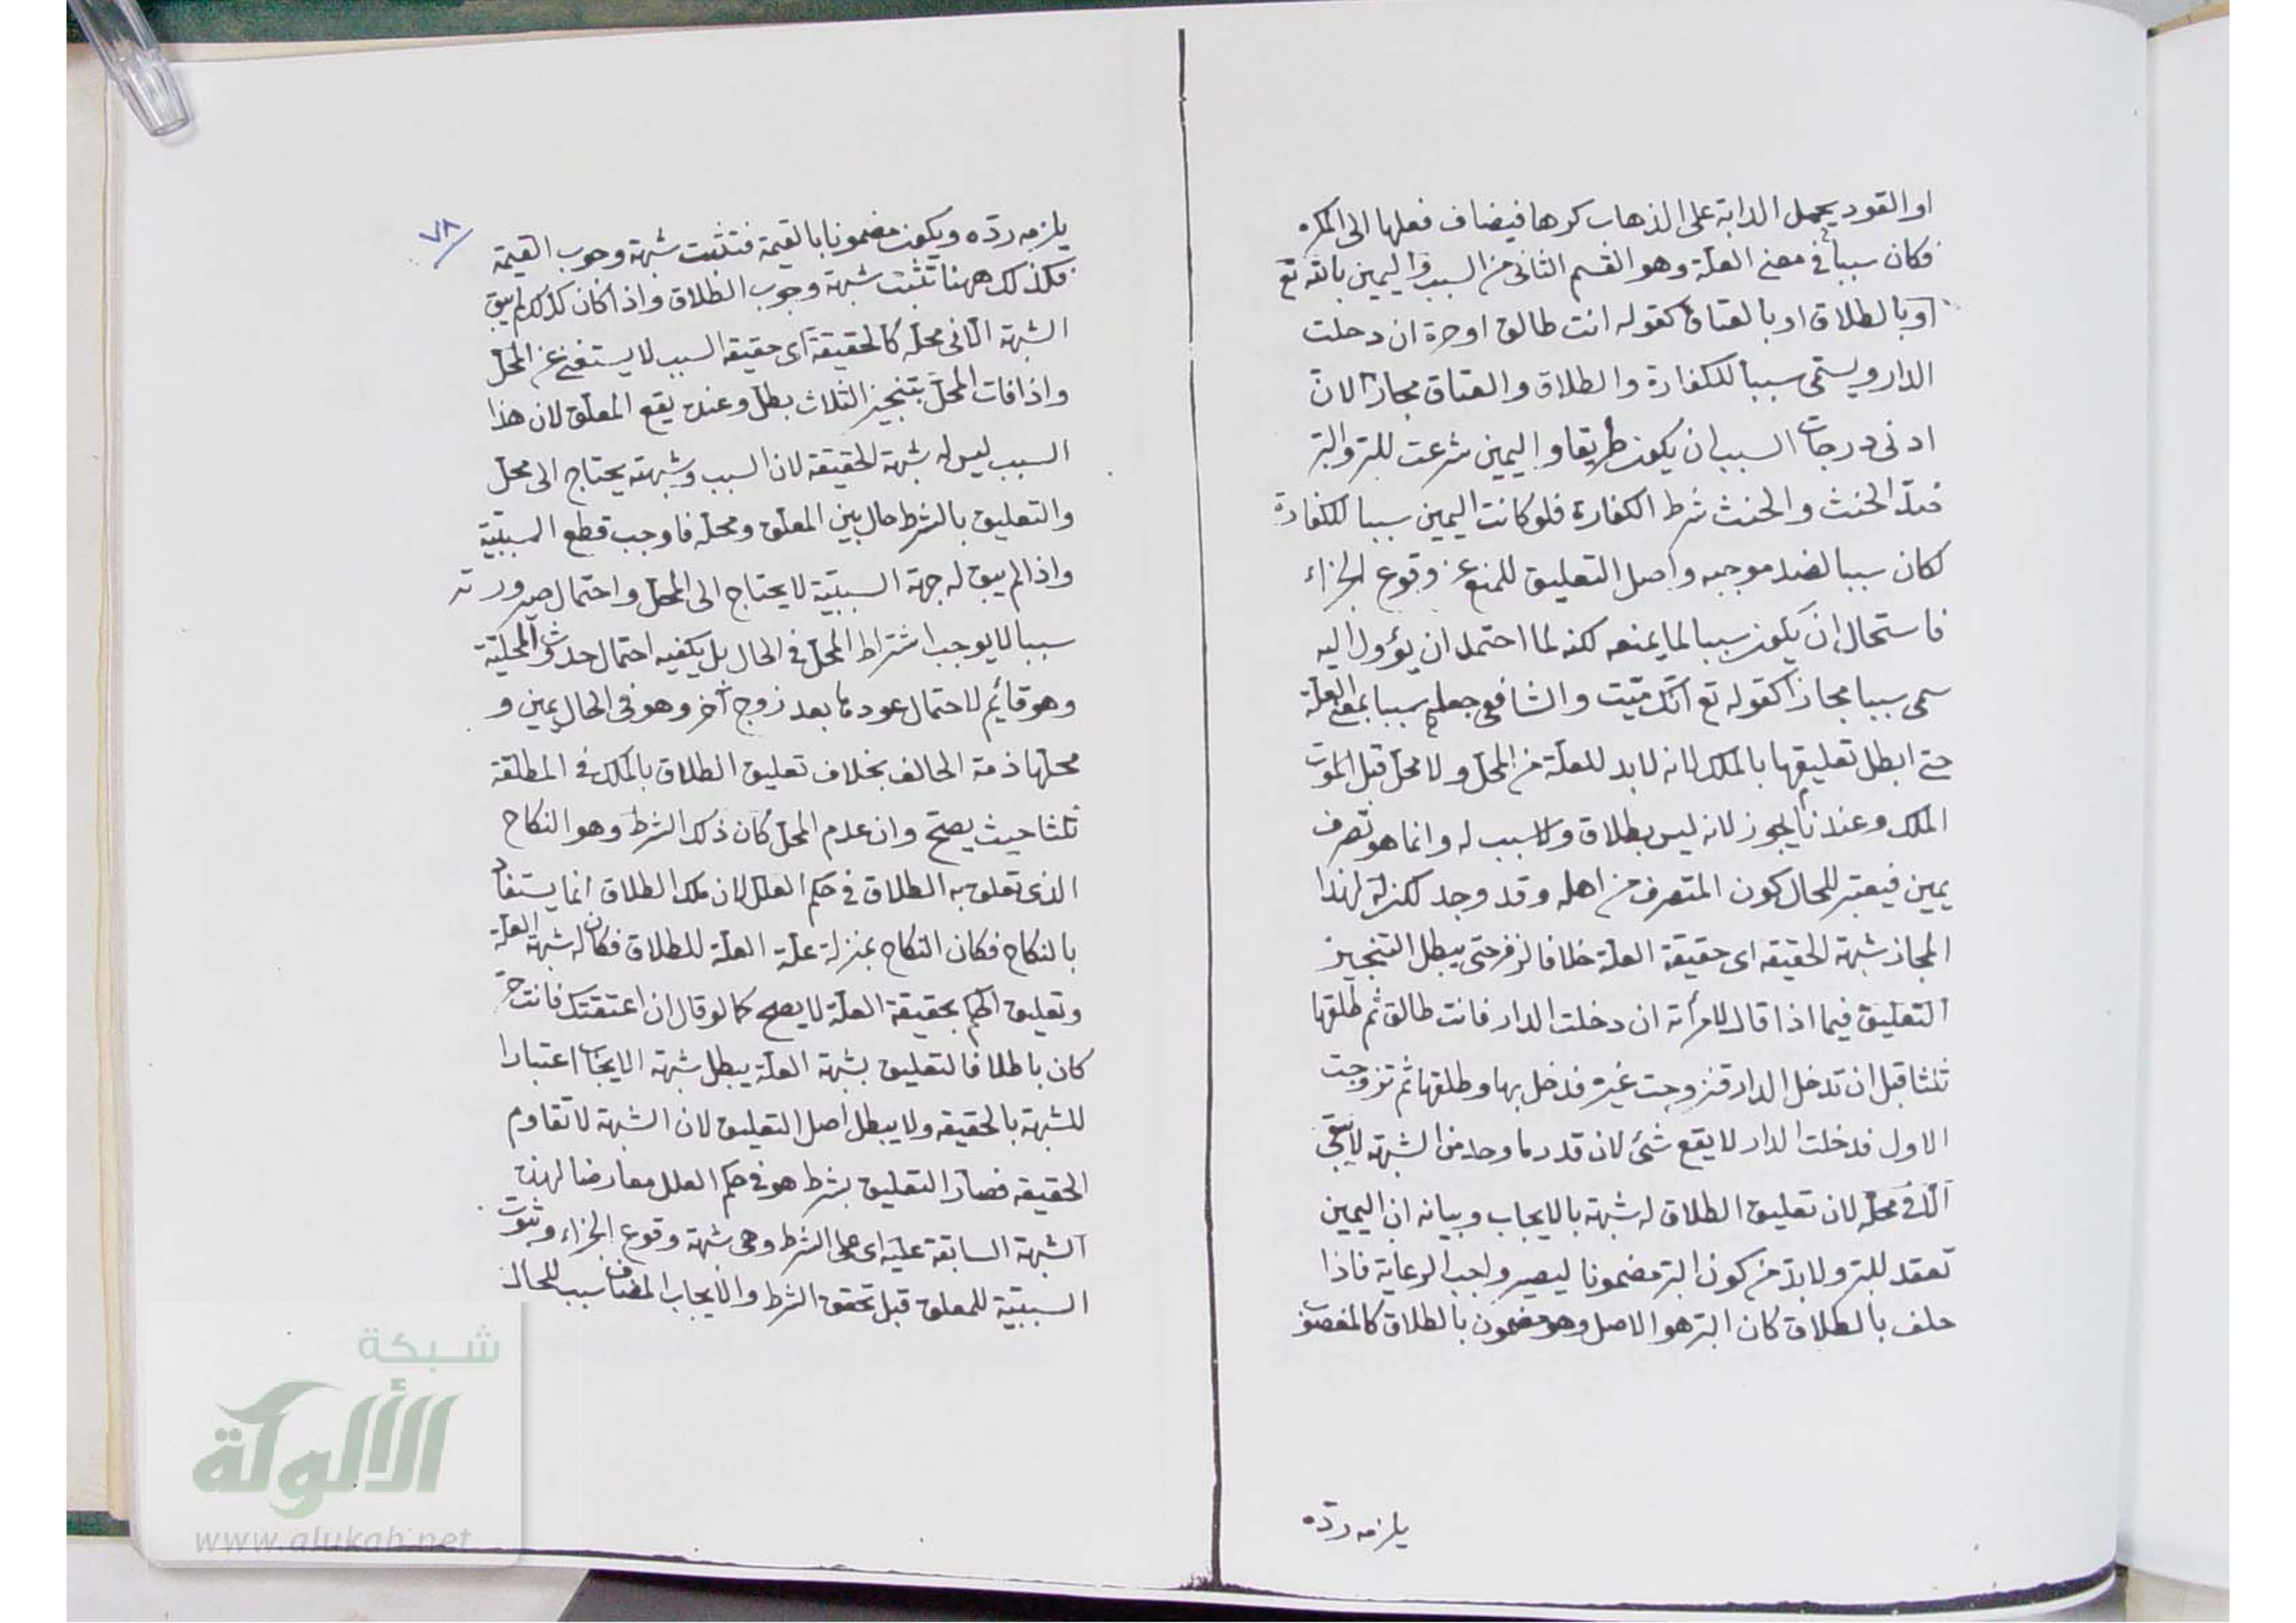 او القود يحمل الدابة على الذهاب كرها فيضاف فعلها الى المكره
فكان سببا في معنى العلة وهو القسم الثاني من السبب واليمين بالله تع
او بالطلاق او بالعتاق كقوله انت طالق او حرة ان دخلت
الدار ويسمى سببا للكفارة والطلاق والعتاق مجازا لان
ادنى درجات السبب ان يكون طريقا واليمين شرعت للبر والبر
ضد الحنث والحنث شرط الكفارة فلو كانت اليمين سببا للكفارة
لكان سببا لضد موجبه واصل التعليق للمنع عن وقوع الجزاء
فاستحال ان يكون سببا لما يمنعه لكنه لما احتمل ان يؤول اليه
سمى سببا مجازا كقوله تع انك ميت والشافعي جعله سببا بمعنى العلة
حتى ابطل تعليقها بالملك لانه لابد للعلة من المحل ولا محل قبل
الملك وعندنا يجوز لانه ليس بطلاق ولا سبب له وانما هو تصرف
يمين فيعتبر للحال كون المتصرف من اهله وقد وجد لكن له لهذا
المجاز شبهة الحقيقة اى حقيقة العلة خلافا لزفر حتى يبطل التنجيز
التعليق فيما اذا قال لامرأته ان دخلت الدار فانت طالق ثم طلقها
ثلثا قبل ان تدخل الدار فتزوجت غيره فدخل بها وطلقها ثم تزوجت
الاول فدخلت الدار لا يقع شئ لان قدر ما وجد من الشبهة لا يبقى
الا فى محله لان تعليق الطلاق له شبهة بالايجاب وبيانه ان اليمين
تعقد للبر ولابد من كون البر مضمونا ليصير واجب الرعاية فاذا
حلف بالطلاق كان البر هو الاصل وهو مضمون بالطلاق كالمغصوب
يلزمه ردّه
٧٨
يلزمه ردّه ويكون مضمونا بالقيمة فتثبت شبهة وجوب القيمة
فكذلك ههنا تثبت شبهة وجوب الطلاق واذا كان كذلك لم يبق
الشبهة الا فى محله كالحقيقة اى حقيقة السبب لا يستغنى عن المحل
واذا فات المحل بتنجيز الثلاث بطل وعنده يقع المعلق لان هذا
السبب ليس له شبهة الحقيقة لان السبب وشبهته يحتاج الى محل
والتعليق بالشرط حال بين المعلق ومحله فاوجب قطع السببيّة
واذا لم يبق له جهة السببيّة لا يحتاج الى المحل واحتمال صيرورته
سببا لا يوجب اشتراط المحل في الحال بل يكفيه احتمال حدوث المحلية
وهو قائم لاحتمال عودها بعد زوج آخر وهو فى الحال يمين و
محلها ذمة الحالف بخلاف تعليق الطلاق بالملك فى المطلقة
ثلثا حيث يصح وان عدم المحل كان ذلك الشرط وهو النكاح
الذى تعلق به الطلاق في حكم العلل لان ملك الطلاق انما يستفاد
بالنكاح فكان النكاح بمنزلة علة العلة للطلاق فكان له شبهة العلة
وتعليق الحكم بحقيقة العلة لا يصح كما لو قال ان اعتقتك فانت حر
كان باطلا فالتعليق بشبهة العلة يبطل شبهة الايجاب اعتبارا
للشبهة بالحقيقة ولا يبطل اصل التعليق لان الشبهة لا تقاوم
الحقيقة فصار التعليق بشرط هو فى حكم العلل معارضا لهذه
الشبهة السابقة عليه اى على الشرط وهى شبهة وقوع الجزاء وثبوت
السببيّة للمعلق قبل تحقق الشرط والايجاب المضاف سبب للحال
شبكة
الألوكة
www.alukah.net